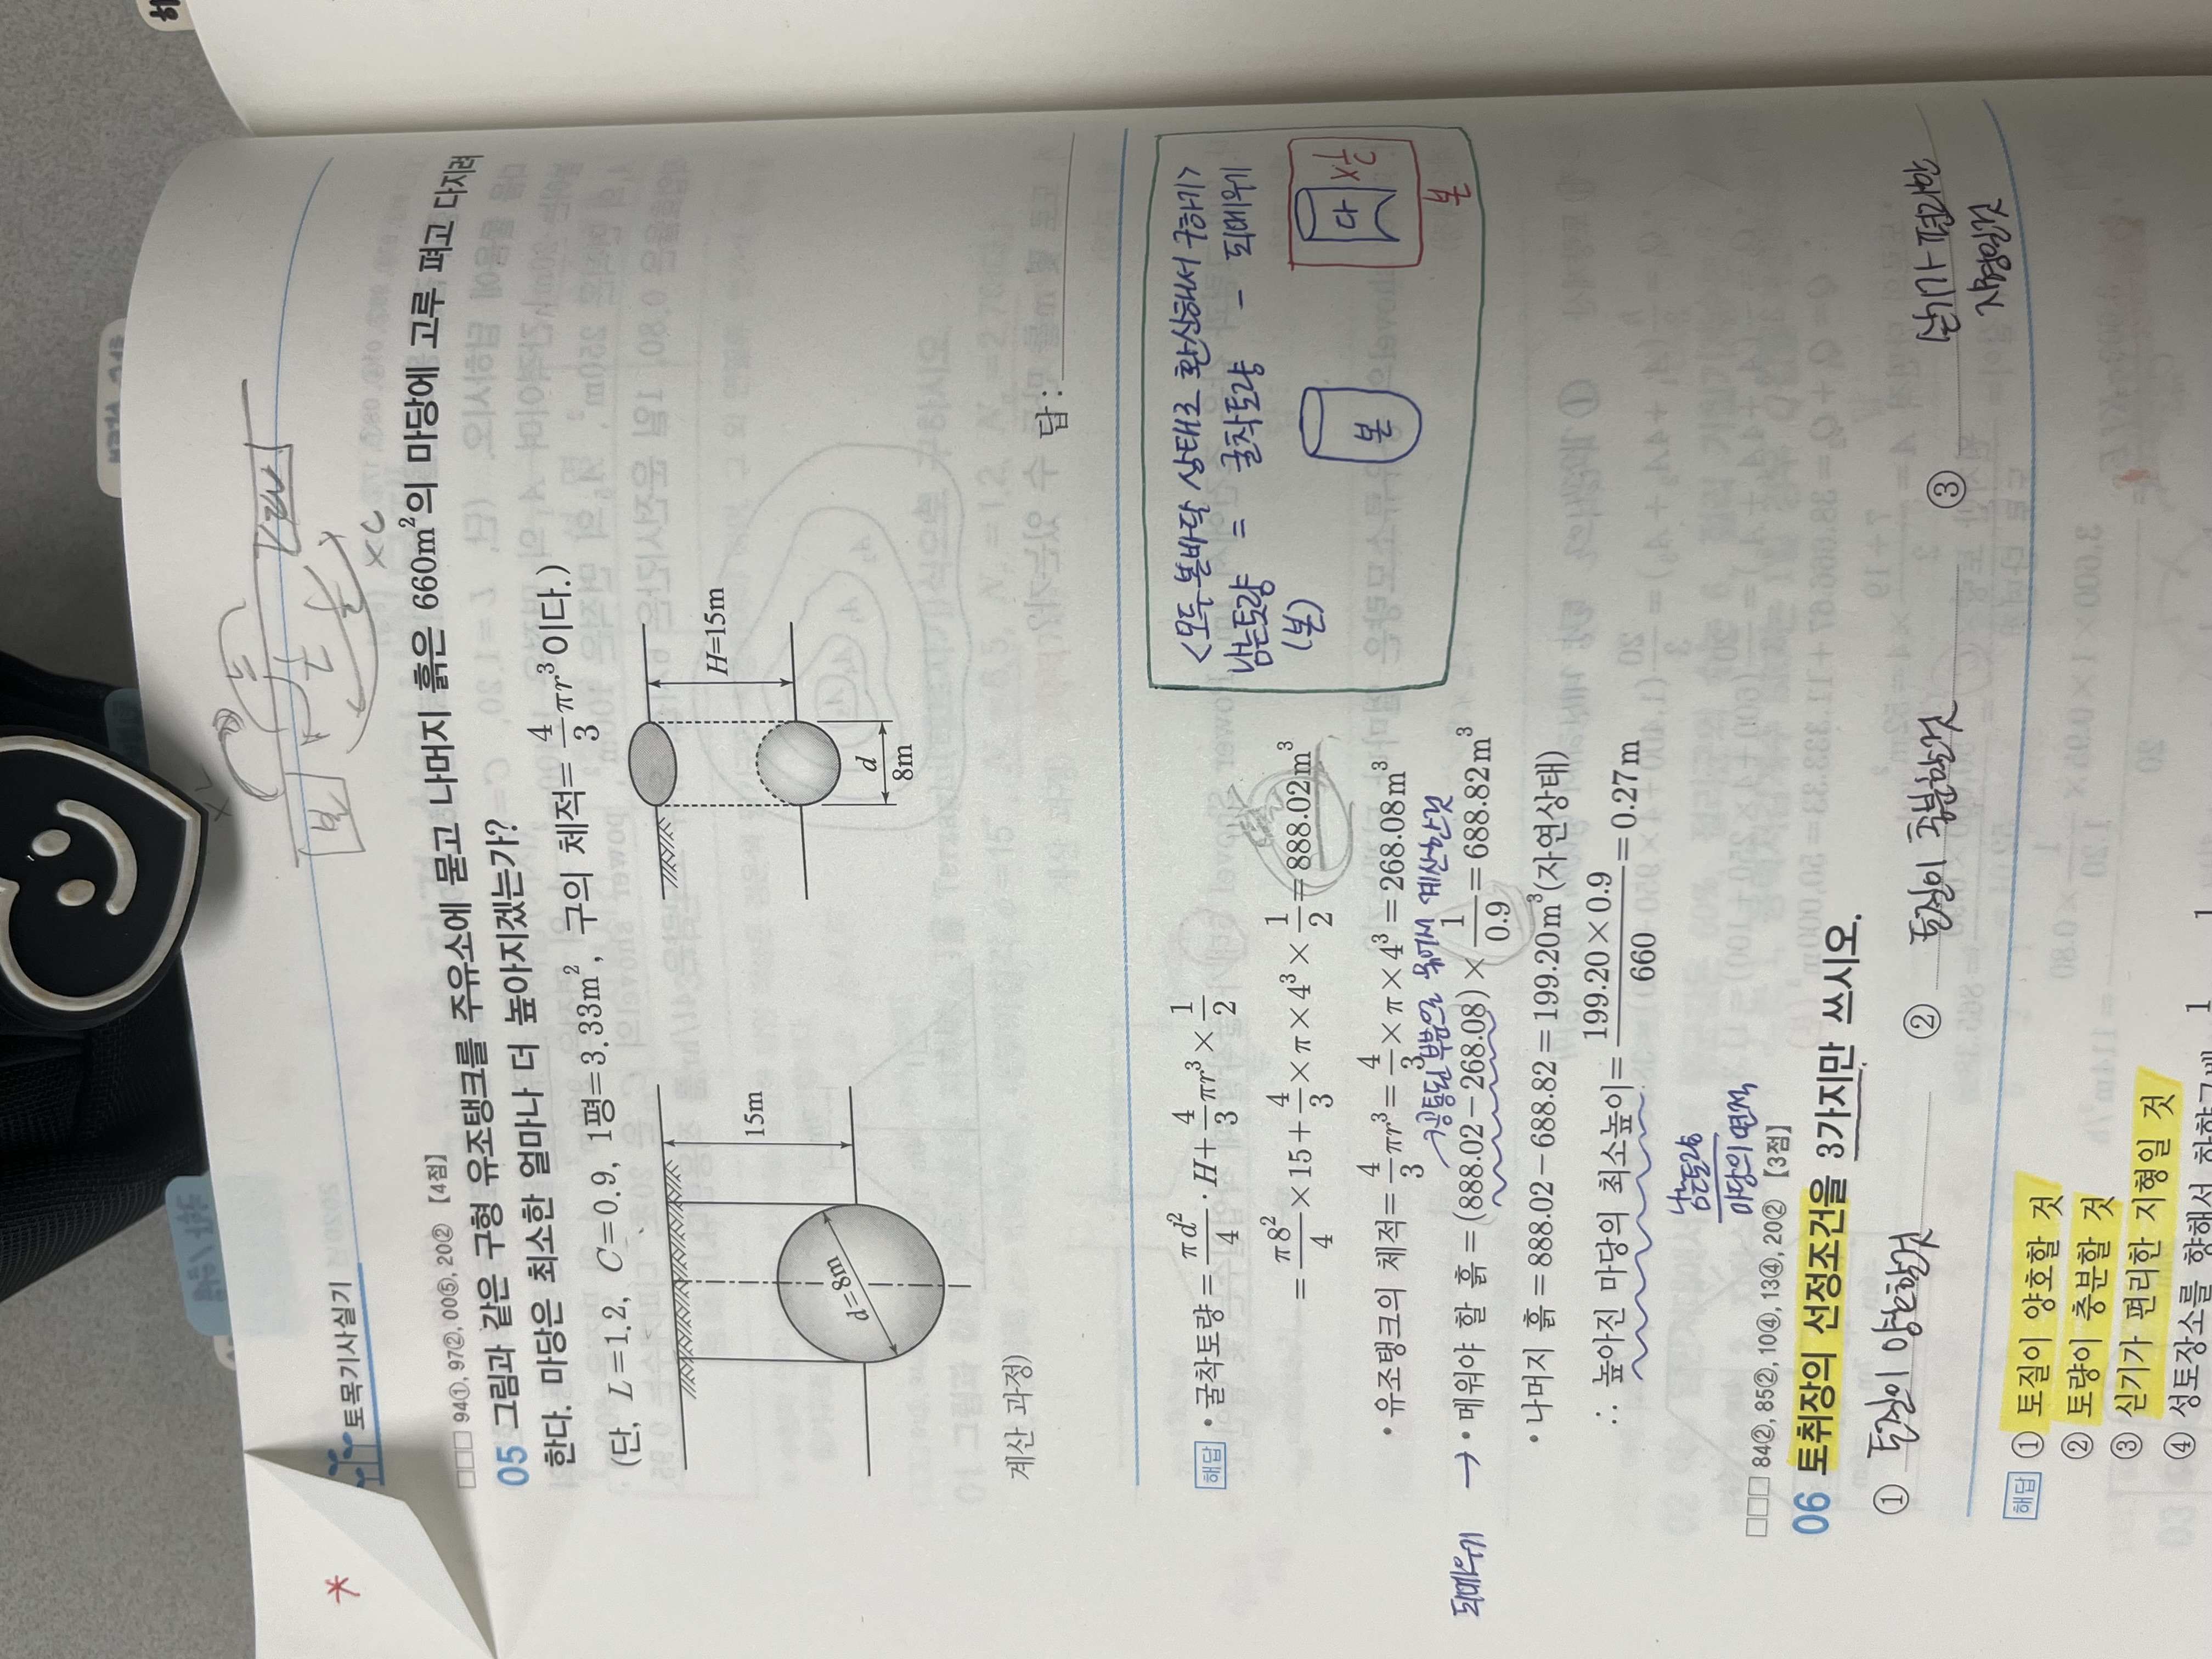 토목기사실기
□□□ 94①, 97②, 00⑤, 20② 【4점】
05 그림과 같은 구형 유조탱크를 주유소에 묻고 나머지 흙은 660m²의 마당에 고루 펴고 다지려
한다. 마당은 최소한 얼마나 더 높아지겠는가?
(단, L=1.2, C=0.9, 1평=3.33m², 구의 체적=4/3πr³이다.)
15m
d=8m
H=15m
d
8m
계산 과정)
답 :
해답 • 굴착토량 = πd²/4 · H + 4/3πr³ × 1/2
= π8²/4 × 15 + 4/3 × π × 4³ × 1/2 = 888.02m³
• 유조탱크의 체적 = 4/3πr³ = 4/3 × π × 4³ = 268.08m³
→ 공통된 부분으로 묶어서 계산한것
되메우기 → • 메워야 할 흙 = (888.02 − 268.08) × 1/0.9 = 688.82m³
• 나머지 흙 = 888.02 − 688.82 = 199.20m³(자연상태)
∴ 높아진 마당의 최소높이 = 199.20 × 0.9/660 = 0.27m
남은토량/마당의 면적
<모두 본바닥 상태로 환산해서 구하기>
남는토량 = 굴착토량 − 되메우기
(본)
본
다
×1/C
본
□□□ 84②, 85②, 10④, 13④, 20② 【3점】
06 토취장의 선정조건을 3가지만 쓰시오.
① 토질이 양호할것 ② 토질이 충분할것 ③ 싣기가 편리한
지형일것
해답 ① 토질이 양호할 것
② 토량이 충분할 것
③ 싣기가 편리한 지형일 것
④ 성토장소를 향해서 하향구배